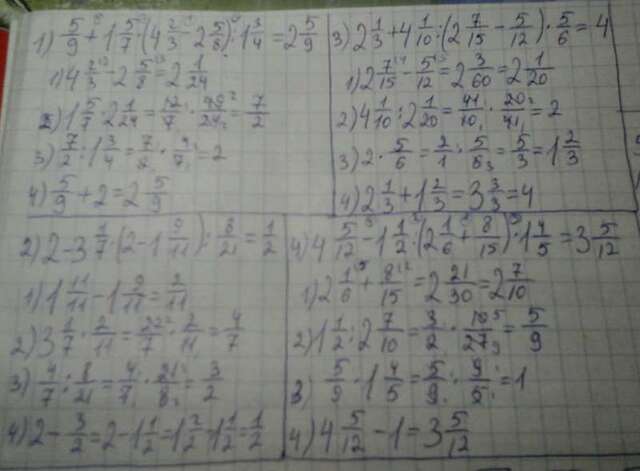 1) 5/9 + 1 5/7 · (4 2/3 - 2 5/8) : 1 3/4 = 2 5/9
1) 4 2/3 - 2 5/8 = 2 1/24
2) 1 5/7 · 2 1/24 = 12/7 · 49/24 = 7/2
3) 7/2 : 1 3/4 = 7/2 · 4/7 = 2
4) 5/9 + 2 = 2 5/9
3) 2 1/3 + 4 1/10 : (2 7/15 - 5/12) · 5/6 = 4
1) 2 7/15 - 5/12 = 2 3/60 = 2 1/20
2) 4 1/10 : 2 1/20 = 41/10 · 20/41 = 2
3) 2 · 5/6 = 2/1 · 5/6 = 5/3 = 1 2/3
4) 2 1/3 + 1 2/3 = 3 3/3 = 4
2) 2 - 3 1/7 · (2 - 1 9/11) : 8/21 = 1/2
1) 1 11/11 - 1 9/11 = 2/11
2) 3 1/7 · 2/11 = 22/7 · 2/11 = 4/7
3) 4/7 : 8/21 = 4/7 · 21/8 = 3/2
4) 2 - 3/2 = 2 - 1 1/2 = 1 2/2 - 1 1/2 = 1/2
4) 4 5/12 - 1 1/2 : (2 1/6 + 8/15) · 1 4/5 = 3 5/12
1) 2 1/6 + 8/15 = 2 21/30 = 2 7/10
2) 1 1/2 : 2 7/10 = 3/2 · 10/27 = 5/9
3) 5/9 · 1 4/5 = 5/9 · 9/5 = 1
4) 4 5/12 - 1 = 3 5/12